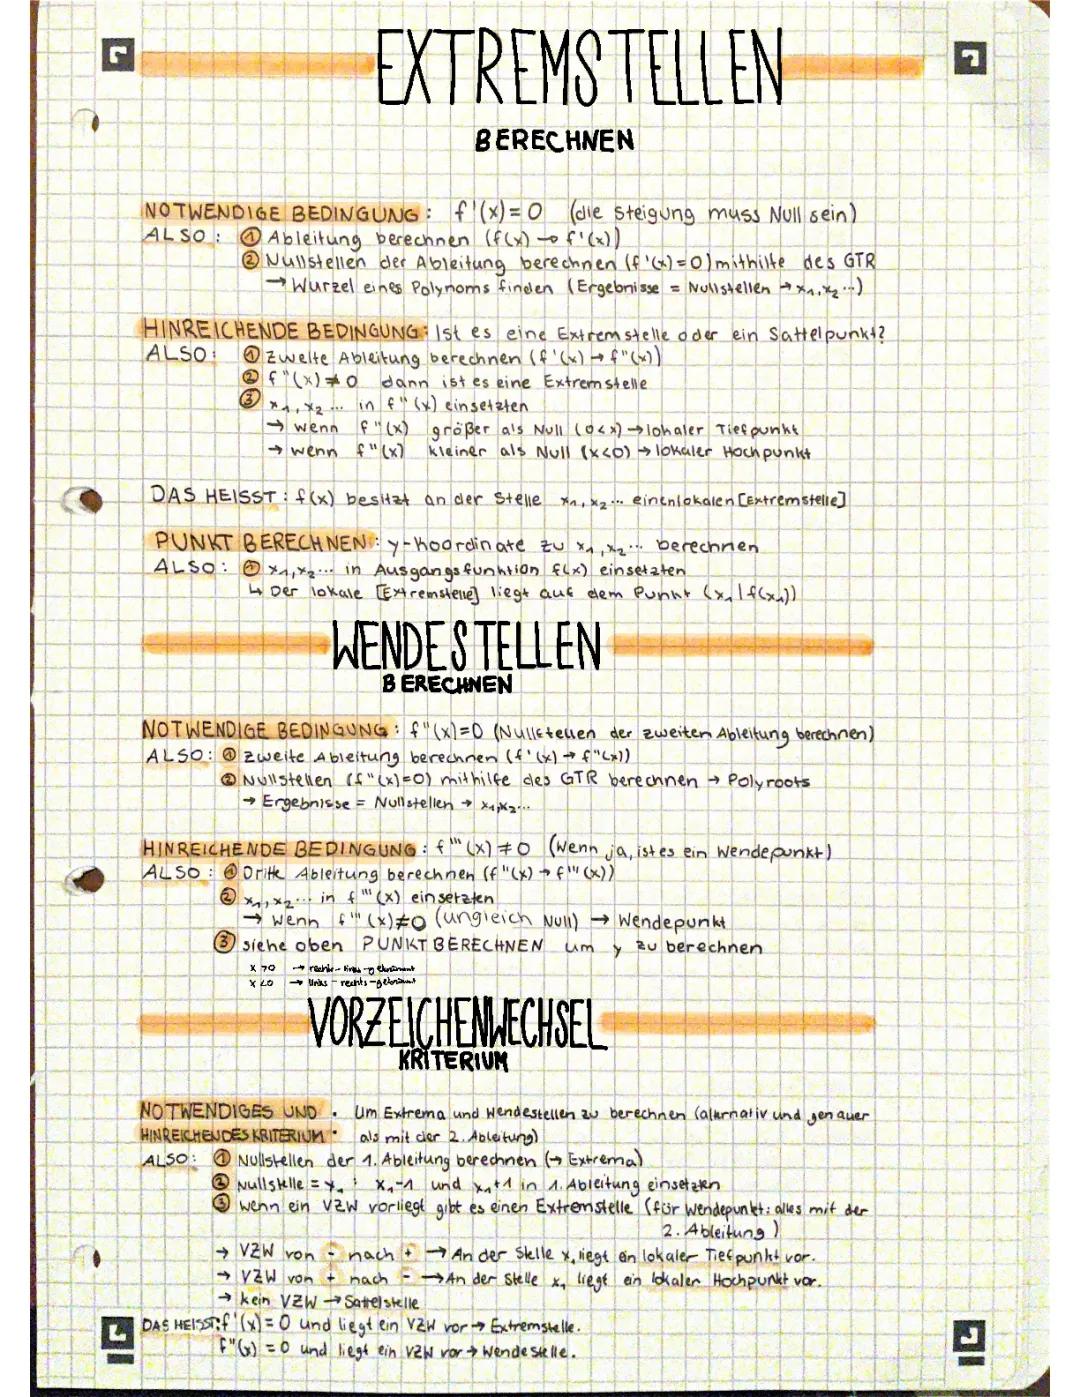 EXTREMSTELLEN
BERECHNEN
NOTWENDIGE BEDINGUNG: f'(x)=0 (die Steigung muss Null sein)
ALSO: ① Ableitung berechnen (f(x) → f'(x))
② Nullstellen der Ableitung berechnen (f'(x)=0) mithilfe des GTR
→ Wurzel eines Polynoms finden (Ergebnisse = Nullstellen → x₁,x₂...)
HINREICHENDE BEDINGUNG: Ist es eine Extremstelle oder ein Sattelpunkt?
ALSO: ① Zweite Ableitung berechnen (f'(x) → f"(x))
② f"(x)≠0 dann ist es eine Extremstelle
③ x₁,x₂... in f"(x) einsetzten
→ wenn f"(x) größer als Null (0<x) → lokaler Tiefpunkt
→ wenn f"(x) kleiner als Null (x<0) → lokaler Hochpunkt
DAS HEISST: f(x) besitzt an der Stelle x₁,x₂... einen lokalen [Extremstelle]
PUNKT BERECHNEN: y-Koordinate zu x₁,x₂... berechnen
ALSO: ① x₁,x₂... in Ausgangsfunktion f(x) einsetzten
↳ Der lokale [Extremstelle] liegt auf dem Punkt (x₁|f(x₁))
WENDESTELLEN
BERECHNEN
NOTWENDIGE BEDINGUNG: f"(x)=0 (Nullstellen der zweiten Ableitung berechnen)
ALSO: ① Zweite Ableitung berechnen (f'(x) → f"(x))
② Nullstellen (f"(x)=0) mithilfe des GTR berechnen → Polyroots
→ Ergebnisse = Nullstellen → x₁,x₂...
HINREICHENDE BEDINGUNG: f'''(x) ≠ 0 (Wenn ja, ist es ein Wendepunkt)
ALSO: ① Dritte Ableitung berechnen (f"(x) → f'''(x))
② x₁,x₂... in f'''(x) einsetzten
→ Wenn f'''(x)≠0 (ungleich Null) → Wendepunkt
③ siehe oben PUNKT BERECHNEN um y zu berechnen
x >0 → rechts-links-gekrümmt
x <0 → links-rechts-gekrümmt
VORZEICHENWECHSEL
KRITERIUM
NOTWENDIGES UND : Um Extrema und Wendestellen zu berechnen (alternativ und genauer
HINREICHENDES KRITERIUM als mit der 2. Ableitung)
ALSO: ① Nullstellen der 1. Ableitung berechnen (→ Extrema)
② Nullstelle = x₁ : x₁-1 und x₁+1 in 1. Ableitung einsetzen
③ wenn ein VZW vorliegt gibt es einen Extremstelle (für Wendepunkt: alles mit der
2. Ableitung)
→ VZW von - nach + → An der Stelle x₁ liegt ein lokaler Tiefpunkt vor.
→ VZW von + nach - → An der Stelle x₁ liegt ein lokaler Hochpunkt vor.
→ kein VZW → Sattelstelle
DAS HEISST: f'(x)=0 und liegt ein VZW vor → Extremstelle.
f"(x) = 0 und liegt ein VZW vor → Wendestelle.